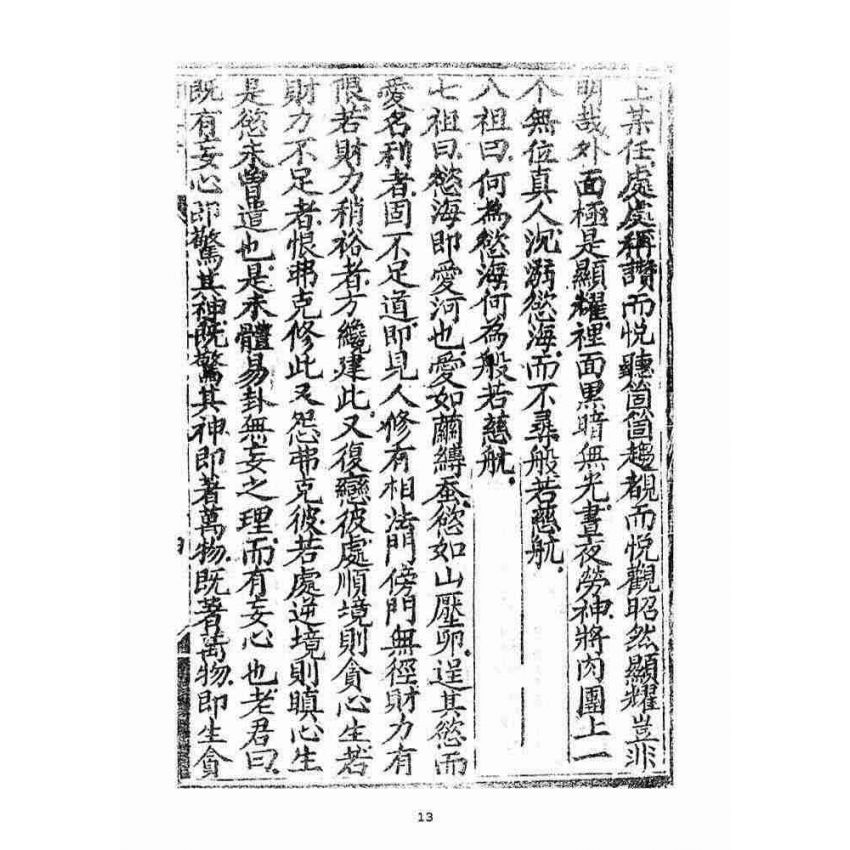 上某任處處稱讚而悅聽箇箇趨覩而悅觀昭然顯耀豈非
明哉外面極是顯耀裡面黑暗無光晝夜勞神將肉團上一
个無位真人沉溺慾海而不尋般若慈航
八祖曰何為慾海何為般若慈航
七祖曰慾海即愛河也愛如繭縛蚕慾如山壓卵逞其慾而
愛名利者固不足道即見人修有相法門傍門無徑財力有
限若財力稍裕者方纔建此又復戀彼處順境則貪心生若
財力不足者恨弗克修此又怨弗克彼若處逆境則瞋心生
是慾未曾遣也是未體易卦無妄之理而有妄心也老君曰
既有妄心即驚其神既驚其神即著萬物既著萬物即生貪
13